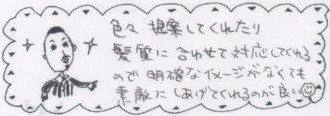 色々 提案してくれたり
髪質に合わせて対応してくれる
ので明確なイメージがなくても
素敵にしあげてくれるのが良い